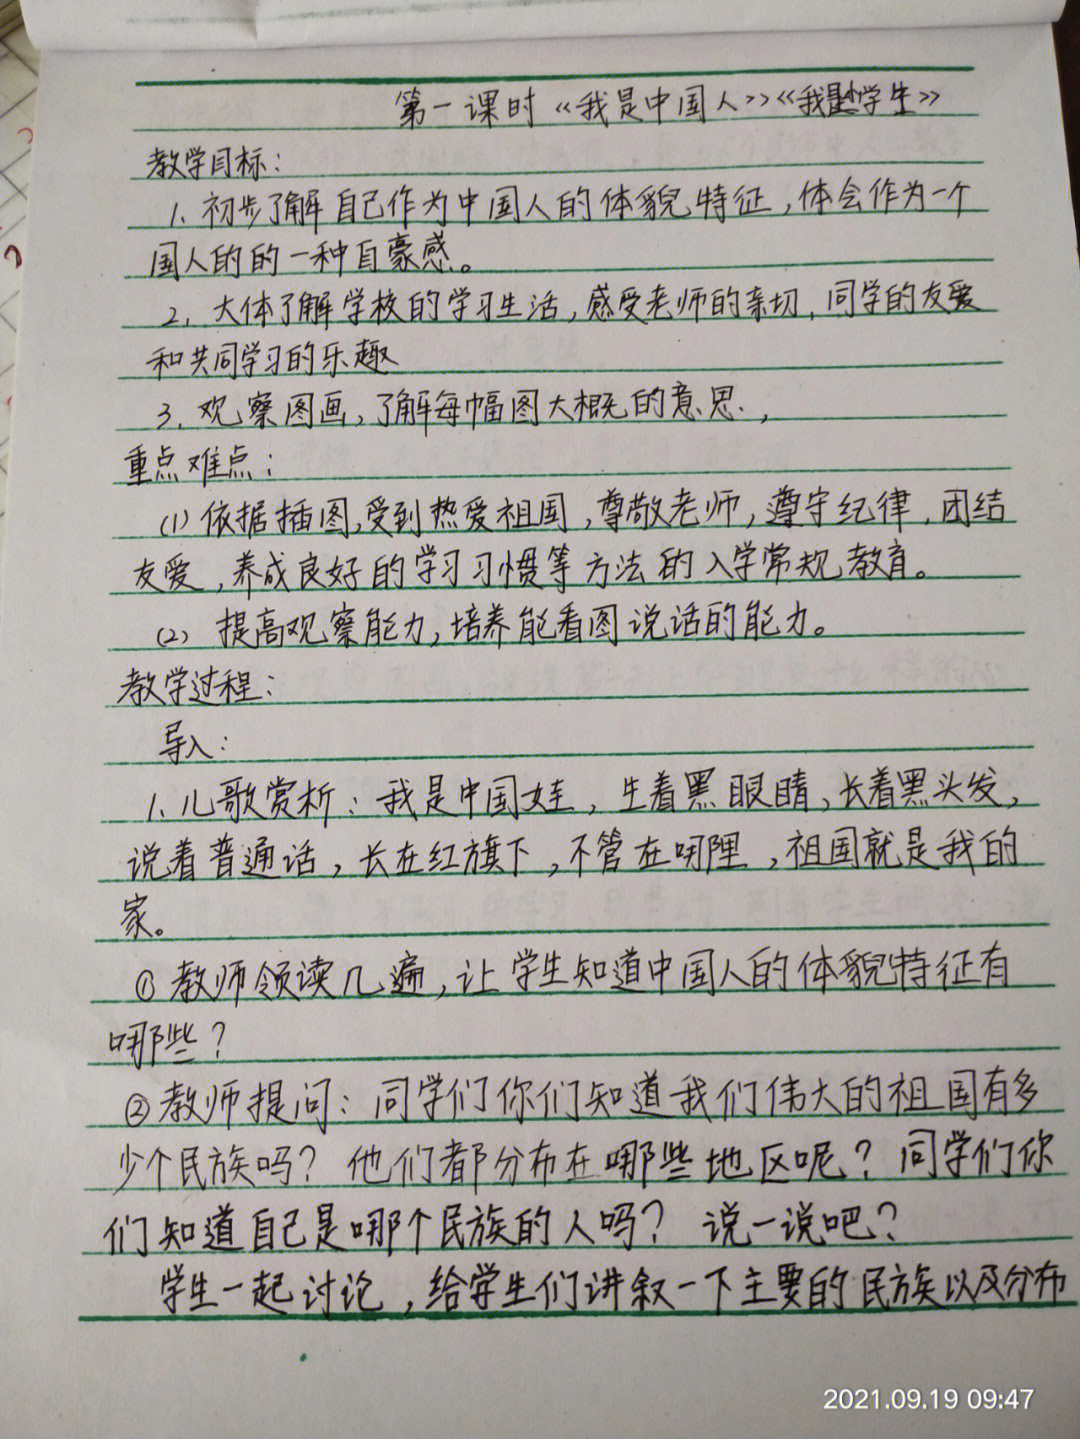 第一课时《我是中国人》《我是小学生》
教学目标：
1. 初步了解自己作为中国人的体貌特征，体会作为一个
国人的的一种自豪感。
2. 大体了解学校的学习生活，感受老师的亲切，同学的友爱
和共同学习的乐趣
3. 观察图画，了解每幅图大概的意思，
重点难点：
(1) 依据插图，受到热爱祖国，尊敬老师，遵守纪律，团结
友爱，养成良好的学习习惯等方法的入学常规教育。
(2) 提高观察能力，培养能看图说话的能力。
教学过程：
导入：
1. 儿歌赏析：我是中国娃，生着黑眼睛，长着黑头发，
说着普通话，长在红旗下，不管在哪里，祖国就是我的
家。
①教师领读几遍，让学生知道中国人的体貌特征有
哪些？
②教师提问：同学们你们知道我们伟大的祖国有多
少个民族吗？他们都分布在哪些地区呢？同学们你
们知道自己是哪个民族的人吗？说一说吧？
学生一起讨论，给学生们讲叙一下主要的民族以及分布
2021.09.19 09:47